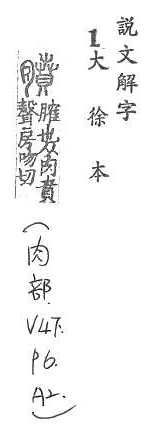 説文解字
1大徐本
膹
臛也从肉賁
聲房吻切
(肉部. V4下. P6. A2.)